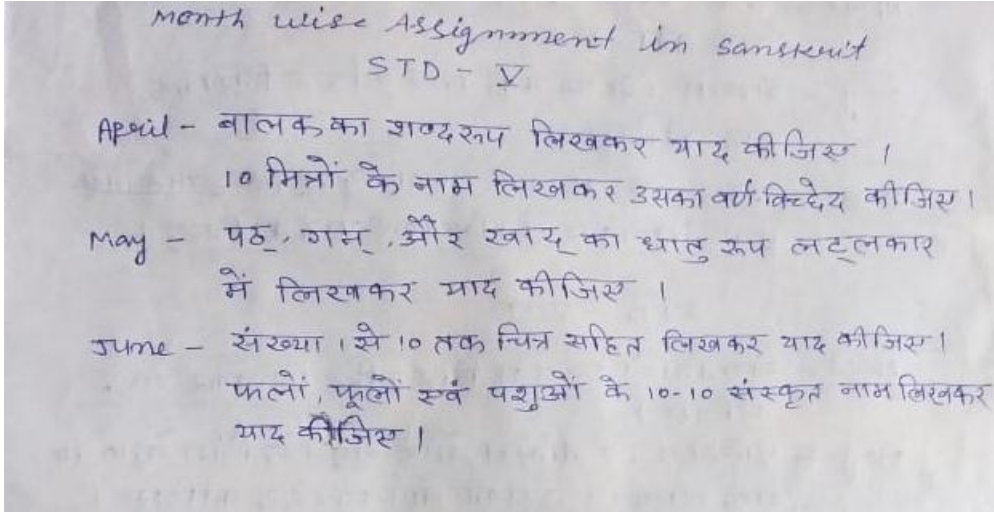 Month wise Assignment in Sanskrit
STD - V
April - बालक का शब्दरूप लिखकर याद कीजिए ।
10 मित्रों के नाम लिखकर उसका वर्ण विच्देद कीजिए ।
May - पठ्, गम्, और खाद् का धातु रूप लट्लकार
में लिखकर याद कीजिए ।
June - संख्या 1 से 10 तक चित्र सहित लिखकर याद कीजिए ।
फलों, फूलों एवं पशुओं के 10-10 संस्कृत नाम लिखकर
याद कीजिए ।